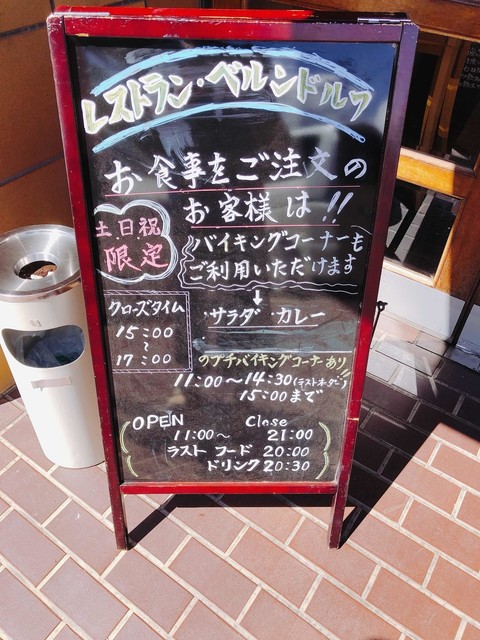 レストラン・ベルンドルフ
お食事をご注文の
お客様は!!
土日祝
限定
バイキングコーナーも
ご利用いただけます
↓
・サラダ ・カレー
のプチバイキングコーナーあり!!
クローズタイム
15:00
~
17:00
11:00~14:30(ラストオーダー)
15:00まで
OPEN Close
11:00~ 21:00
ラスト フード 20:00
ドリンク 20:30